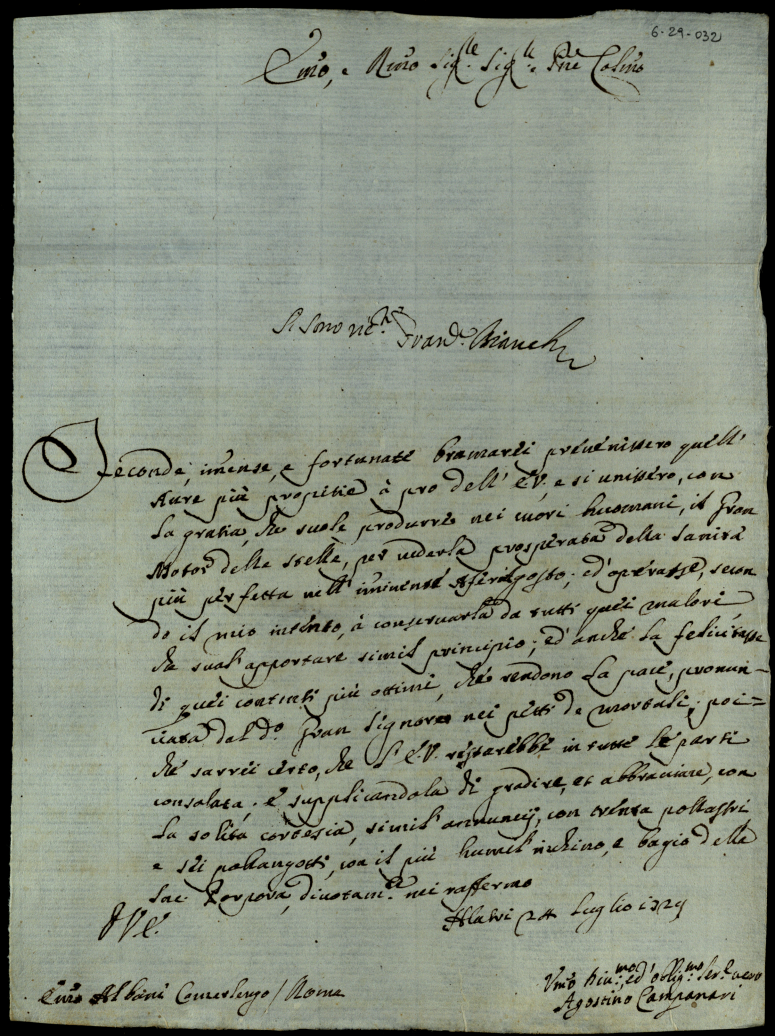 6-29-032
Emo, e Rmo Sigre Sigre e Pne Colmo
Si sono ric.te Franc.o Bianchi
Feconde, imense, e fortunate bramarei prevenissero quell'
Aure più propitie à pro dell' E.V., e si unissero, con
la gratia, che suole produrre nei cuori huomani, il Gran
Motor delle stelle, per vederla prosperata della sanità
più perfetta nell' iminente Feriagosto; ed' operasse, secon
do il mio intento, à conservarla da tutti quei malori,
che suol' apportare simil principio; ed' anche la felicitasse
di quei contenti più ottimi, che rendono la pace, pronun-
ciata dal d.o Gran Signore nei petti de mortali; poi=
chè sarrei certo, che l'E.V. restarebbe in tutte le parti
consolata; e supplicandola di gradire, et abbraciare, con
la solita cortesia, simil' annuncij, con trenta pollastri
e sei pollangotti, con il più humil' inchino, e bagio della
Sac. Porpora, divotam.te nei raffermo
D V E.
Alatri 24 Luglio 1729
Emo Albani Camerlengo / Roma
Umo Div.mo, ed' oblig.mo Ser.re vero
Agostino Campanari